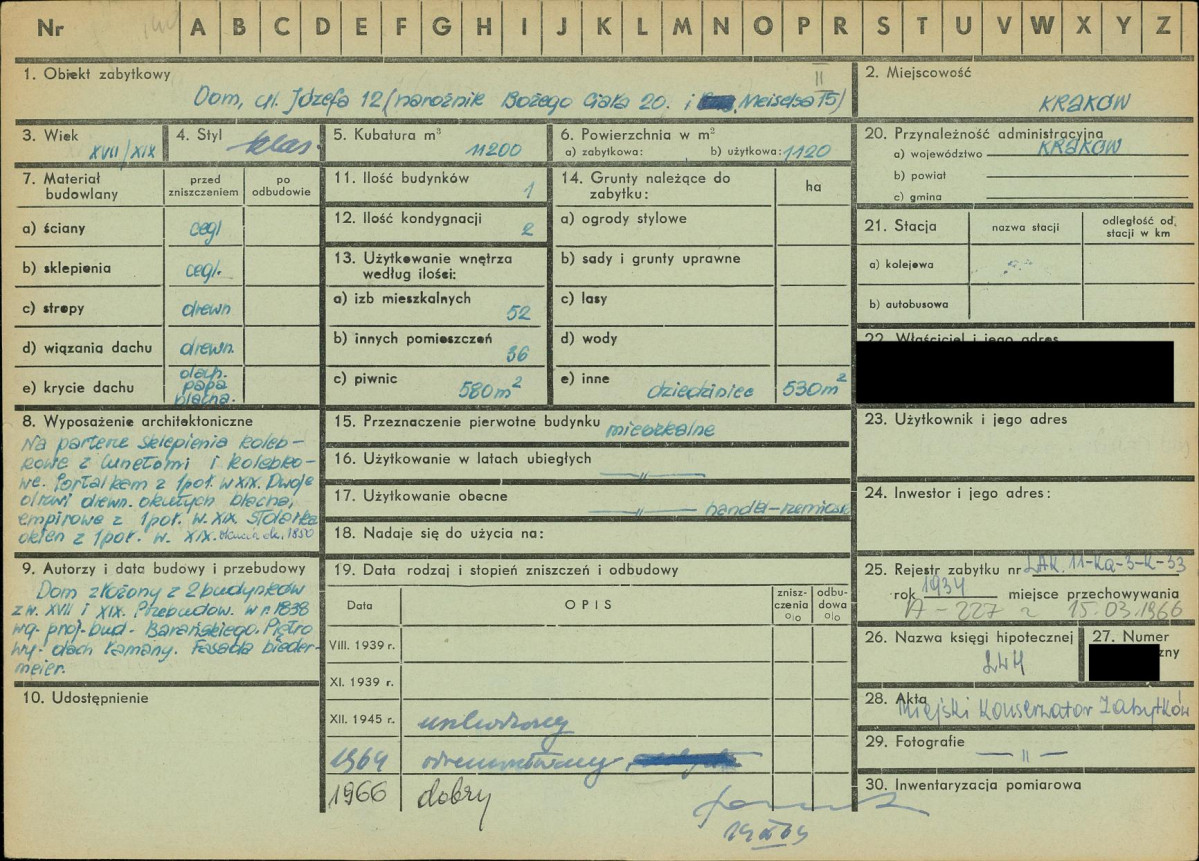 Nr A B C D E F G H I J K L M N O P R S T U V W X Y Z
1. Obiekt zabytkowy
Dom, ul. Józefa 12 (narożnik Bożego Ciała 20. i Meiselsa 15)
II
2. Miejscowość
KRAKÓW
3. Wiek
XVII/XIX
4. Styl
klas.
5. Kubatura m³
11200
6. Powierzchnia w m²
a) zabytkowa: b) użytkowa: 1120
20. Przynależność administracyjna
a) województwo KRAKÓW
b) powiat
c) gmina
7. Materiał budowlany
przed zniszczeniem
po odbudowie
a) ściany cegl
b) sklepienia cegl.
c) stropy drewn
d) wiązania dachu drewn.
e) krycie dachu dach. papa blacha.
11. Ilość budynków 1
12. Ilość kondygnacji 2
13. Użytkowanie wnętrza
według ilości:
a) izb mieszkalnych 52
b) innych pomieszczeń 36
c) piwnic 580 m²
14. Grunty należące do
zabytku:
ha
a) ogrody stylowe
b) sady i grunty uprawne
c) lasy
d) wody
e) inne dziedziniec 530 m²
21. Stacja
nazwa stacji
odległość od stacji w km
a) kolejowa
b) autobusowa
22. Właściciel i jego adres
8. Wyposażenie architektoniczne
Na parterze sklepienia koleb-
kowe z lunetami i kolebko-
we. Portalkem z 1 poł. w XIX. Dwoje
drzwi drewn. okutych blachą,
empirowe z 1 poł. w. XIX Stolarka
okien z 1 poł. w. XIX. ok. 1850
15. Przeznaczenie pierwotne budynku mieszkalne
16. Użytkowanie w latach ubiegłych —"—
17. Użytkowanie obecne —"— handel-rzemiosło
18. Nadaje się do użycia na:
23. Użytkownik i jego adres
24. Inwestor i jego adres:
9. Autorzy i data budowy i przebudowy
Dom złożony z 2 budynków
z w. XVII i XIX. Przebudow. w r. 1838
wg. proj. bud. Barańskiego. Piętro
wy. dach łamany. Fasada bieder-
meier.
10. Udostępnienie
19. Data rodzaj i stopień zniszczeń i odbudowy
Data
OPIS
znisz-czenia %
odbu-dowa %
VIII. 1939 r.
XI. 1939 r.
XII. 1945 r. uszkodzony
1964 odremontowany
1966 dobry
25. Rejestr zabytku nr LAK. 11-Ka-3-K-33
rok 1934 miejsce przechowywania
A-227 z 15.03.1966
26. Nazwa księgi hipotecznej
27. Numer
zny
28. Akta
Miejski Konserwator Zabytków
29. Fotografie —"—
30. Inwentaryzacja pomiarowa